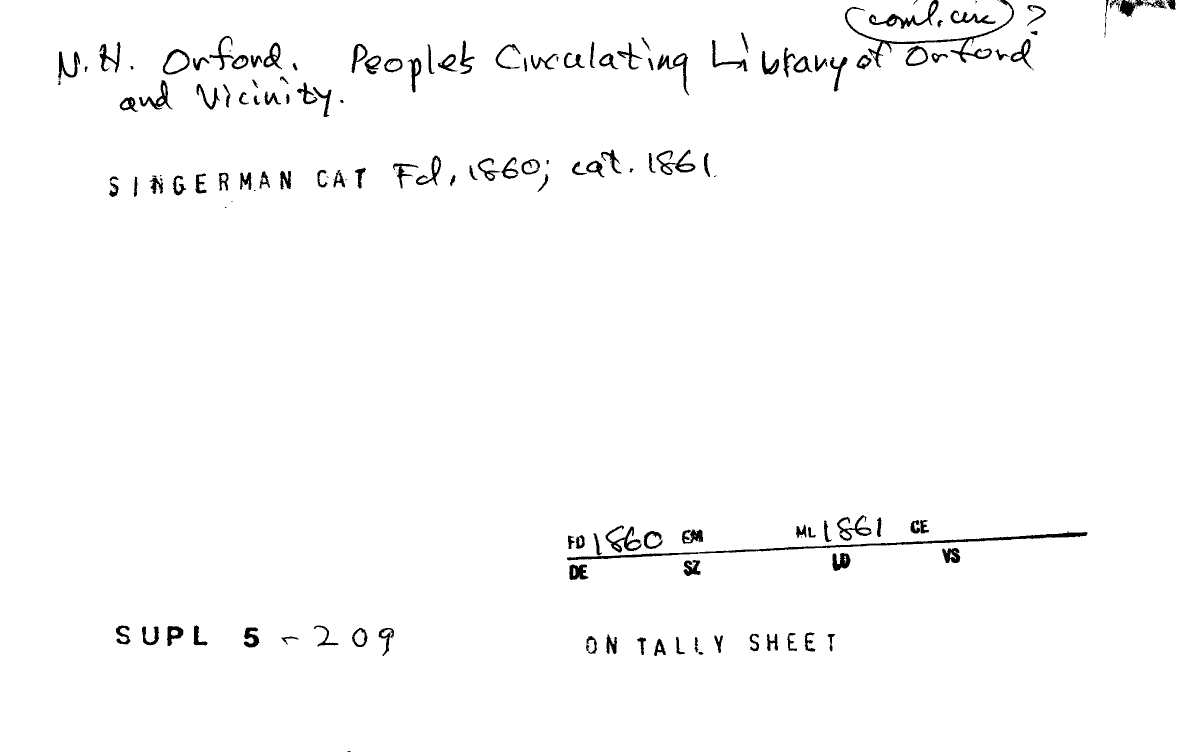 (coml. circ) ?
N.H. Orford. People's Circulating Library of Orford
and Vicinity.
SINGERMAN CAT Fd. 1860; cat. 1861
FD 1860 EM ML 1861 CE
DE SZ LD VS
SUPL 5 - 209
ON TALLY SHEET